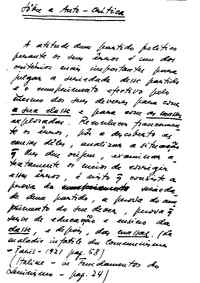 Sôbre a Auto-Crítica
A atitude dum partido politico
perante os seus êrros é um dos
critérios mais importantes para
julgar a seriedade desse partido
e o cumprimento efectivo pelo
mesmo dos seus deveres para com
a sua classe e para com as massas
exploradas. Reconhecer francamen-
te os êrros, pôr a descoberto as
causas dêles, analizar a situação
q. lhes deu origem, examinar a-
tentamente os meios de corrigir
esses êrros, é isto q. constitue a
prova da seriedade
de dum partido, a prova do cum-
primento do seu dever, prova q.
serve de educação e ensino da
classe, e depois, das massas. (La
maladie infantile du communisme
- Paris - 1921 pag. 58)
(Staline - in Fundamentos do
Leninismo - pag. 24)